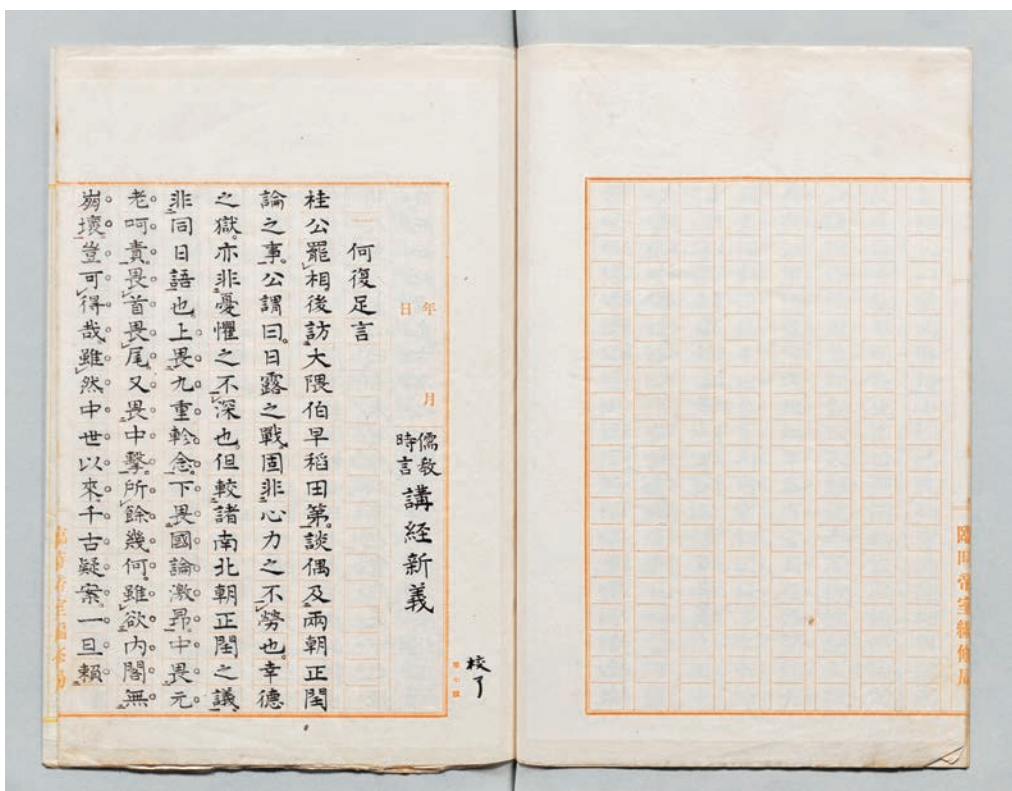 臨時帝室編修局
校了
年 月 日
儒教時言 講経新義
何復足言
桂公罷相後訪大隈伯早稻田第。談偶及兩朝正閏
論之事。公謂曰。日露之戰。固非心力之不勞也。幸德
之獄。亦非憂懼之不深也。但較諸南北朝正閏之議。
非同日語也。上畏九重軫念。下畏國論激昂。中畏元
老呵責。畏首畏尾。又畏中擊。所餘幾何。雖欲内閣無
崩壞。豈可得哉。雖然中世以來。千古疑案。一旦賴